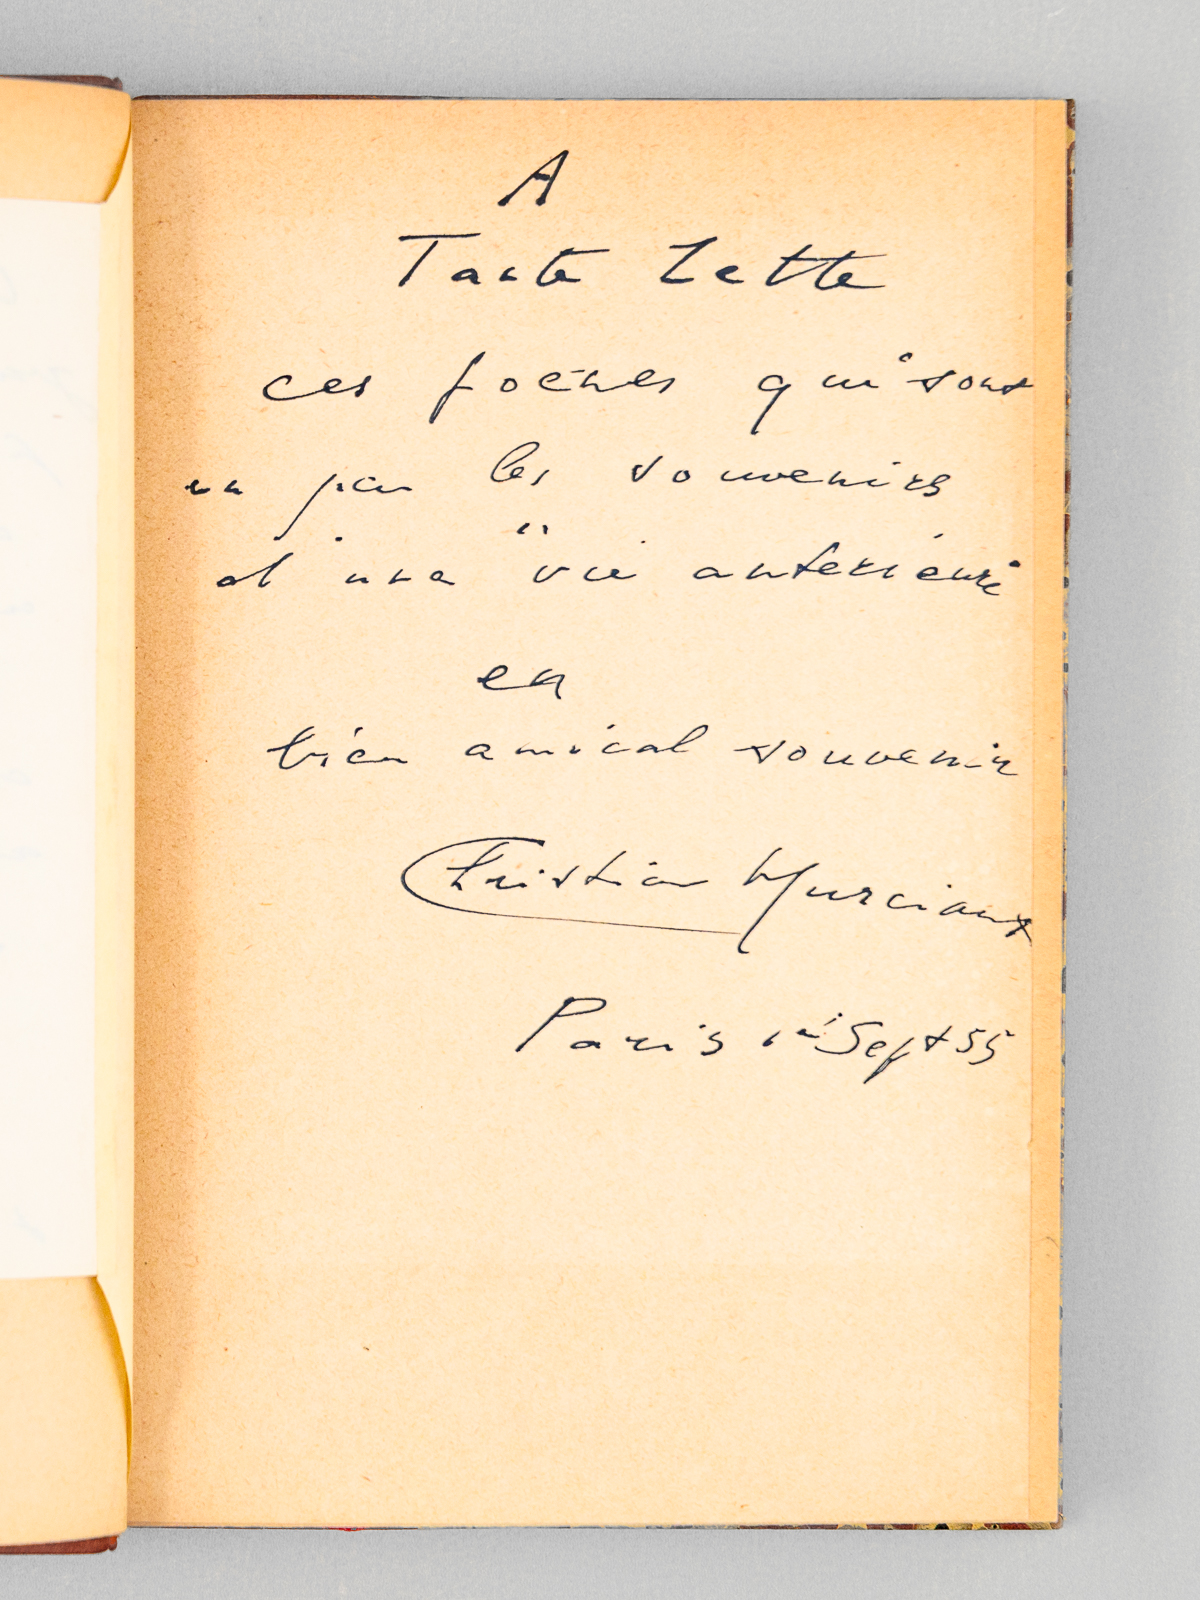 A
Tante Zette
ces poèmes qui sont
un peu les souvenirs
d'une "vie antérieure
en
bien amical souvenir
Christian Murciaux
Paris 1er Sept 55